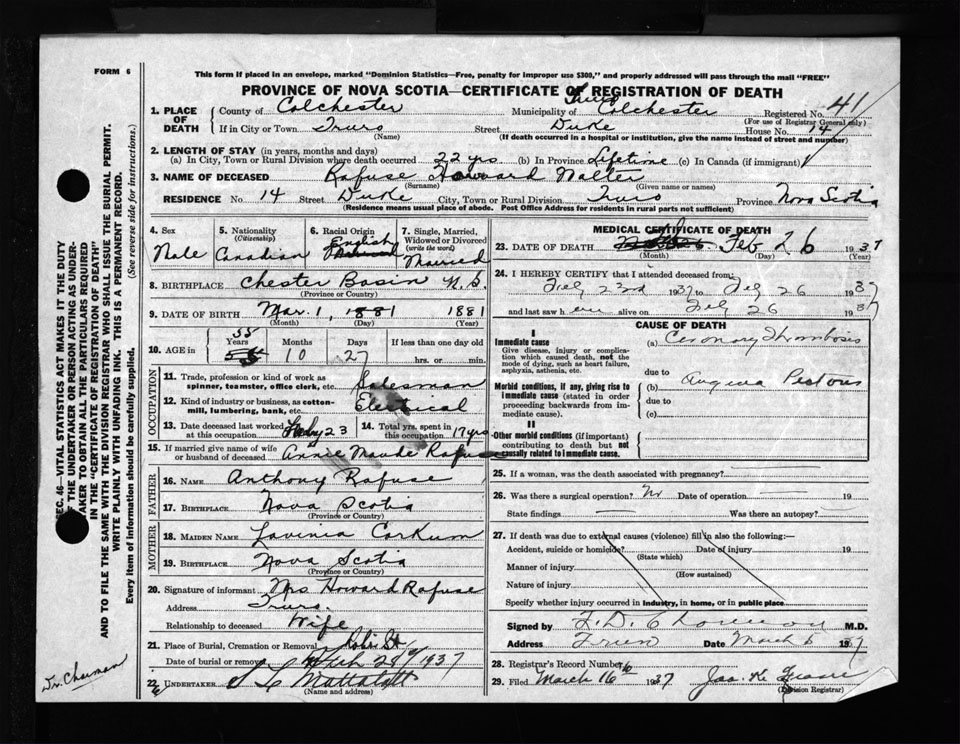 FORM 6
This form if placed in an envelope, marked "Dominion Statistics—Free, penalty for improper use $300," and properly addressed will pass through the mail "FREE"
PROVINCE OF NOVA SCOTIA—CERTIFICATE OF REGISTRATION OF DEATH
1. PLACE OF DEATH
County of Colchester Municipality of Truro Colchester Registered No. 41
(For use of Registrar General only)
If in City or Town Truro Street Duke House No. 14
(Name) (If death occurred in a hospital or institution, give the name instead of street and number)
2. LENGTH OF STAY (in years, months and days)
(a) In City, Town or Rural Division where death occurred 22 yrs (b) In Province Lifetime (c) In Canada (if immigrant)
3. NAME OF DECEASED Rafuse Howard Walter
(Surname) (Given name or names)
RESIDENCE No. 14 Street Duke City, Town or Rural Division Truro Province Nova Scotia
(Residence means usual place of abode. Post Office Address for residents in rural parts not sufficient)
4. Sex Male
5. Nationality (Citizenship) Canadian
6. Racial Origin English
7. Single, Married, Widowed or Divorced (write the word) Married
8. BIRTHPLACE Chester Basin N.S.
(Province or Country)
9. DATE OF BIRTH Mar. 1, 1881 1881
(Month) (Day) (Year)
10. AGE in 55 Years 10 Months 27 Days If less than one day old
hrs. or min.
OCCUPATION
11. Trade, profession or kind of work as spinner, teamster, office clerk, etc. Salesman
12. Kind of industry or business, as cotton-mill, lumbering, bank, etc. Electrical
13. Date deceased last worked at this occupation Feby 23
14. Total yrs. spent in this occupation 17 yrs
15. If married give name of wife or husband of deceased Annie Maude Rafuse
FATHER
16. NAME Anthony Rafuse
17. BIRTHPLACE Nova Scotia
(Province or Country)
MOTHER
18. MAIDEN NAME Lavinia Corkum
19. BIRTHPLACE Nova Scotia
(Province or Country)
20. Signature of informant Mrs Howard Rafuse
Address Truro
Relationship to deceased Wife
21. Place of Burial, Cremation or Removal Robie St
Date of burial or removal 28th 1937
22. UNDERTAKER Mattatall
(Name and address)
MEDICAL CERTIFICATE OF DEATH
23. DATE OF DEATH Feb 26 1937
(Month) (Day) (Year)
24. I HEREBY CERTIFY that I attended deceased from:
Feby 23rd 1937 to Feby 26 1937
and last saw h alive on Feby 26 1937
CAUSE OF DEATH
I
Immediate cause
Give disease, injury or complication which caused death, not the mode of dying, such as heart failure, asphyxia, asthenia, etc.
(a) Coronary Thrombosis
due to
Morbid conditions, if any, giving rise to immediate cause (stated in order proceeding backwards from immediate cause).
(b) Angina Pectoris
due to
(c)
II
Other morbid conditions (if important) contributing to death but not causally related to immediate cause.
25. If a woman, was the death associated with pregnancy?
26. Was there a surgical operation? No Date of operation 19
State findings Was there an autopsy?
27. If death was due to external causes (violence) fill in also the following:—
Accident, suicide or homicide? Date of injury 19
(State which)
Manner of injury
(How sustained)
Nature of injury
Specify whether injury occurred in industry, in home, or in public place
Signed by M.D.
Address Truro Date March 6 1937
28. Registrar's Record Number
29. Filed March 16th 1937 Jas. K.
(Division Registrar)
SEC. 46—VITAL STATISTICS ACT MAKES IT THE DUTY
OF THE UNDERTAKER OR PERSON ACTING AS UNDERTAKER TO OBTAIN ALL THE PARTICULARS REQUIRED
IN THE "CERTIFICATE OF REGISTRATION OF DEATH"
AND TO FILE THE SAME WITH THE DIVISION REGISTRAR WHO SHALL ISSUE THE BURIAL PERMIT.
WRITE PLAINLY WITH UNFADING INK. THIS IS A PERMANENT RECORD.
Every item of information should be carefully supplied. (See reverse side for instructions.)